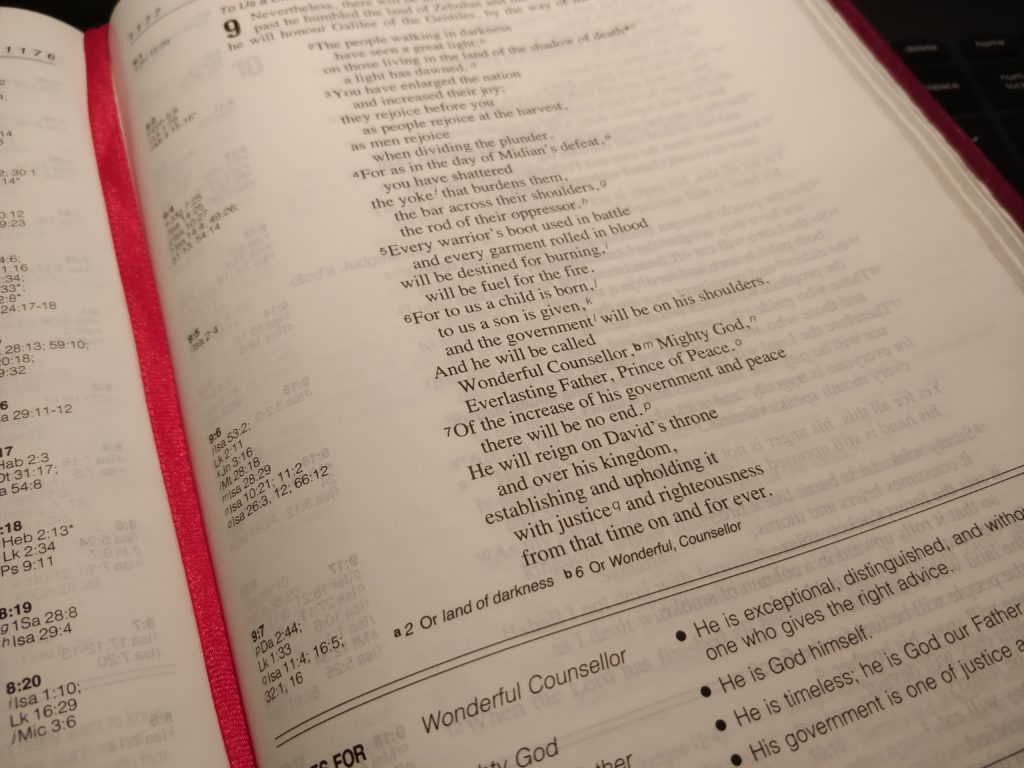 1176
2; 30:1
14*
0:12
9:23
4:6;
1:16
:34;
33*;
2:8*
24:17-18
28:13; 59:10;
0:18;
9:32
6
a 29:11-12
17
Hab 2:3
Dt 31:17;
a 54:8
:18
Heb 2:13*
Lk 2:34
Ps 9:11
8:19
g 1Sa 28:8
h Isa 29:4
8:20
i Isa 1:10;
Lk 16:29
j Mic 3:6
1177
9:5
i Isa 2:4
9:6
j Isa 53:2;
Lk 2:11
k Jn 3:16
l Mt 28:18
m Isa 28:29
n Isa 10:21; 11:2
o Isa 26:3, 12; 66:12
9:7
p Da 2:44;
Lk 1:33
q Isa 11:4; 16:5;
32:1, 16
To Us a
9 Nevertheless, there will be
past he humbled the land of Zebulun and
he will honour Galilee of the Gentiles, by the way of
2The people walking in darkness
have seen a great light;
on those living in the land of the shadow of death
a light has dawned.
3You have enlarged the nation
and increased their joy;
they rejoice before you
as people rejoice at the harvest,
as men rejoice
when dividing the plunder.
4For as in the day of Midian's defeat,e
you have shattered
the yokef that burdens them,
the bar across their shoulders,g
the rod of their oppressor.h
5Every warrior's boot used in battle
and every garment rolled in blood
will be destined for burning,i
will be fuel for the fire.
6For to us a child is born,j
to us a son is given,k
and the governmentl will be on his shoulders.
And he will be called
Wonderful Counsellor,bm Mighty God,n
Everlasting Father, Prince of Peace.o
7Of the increase of his government and peace
there will be no end.p
He will reign on David's throne
and over his kingdom,
establishing and upholding it
with justiceq and righteousness
from that time on and for ever.
a 2 Or land of darkness b 6 Or Wonderful, Counsellor
FOR
Wonderful Counsellor
God
• He is exceptional, distinguished, and
one who gives the right advice.
• He is God himself.
• He is timeless; he is God our Father
• His government is one of justice
delete
home
num
lock